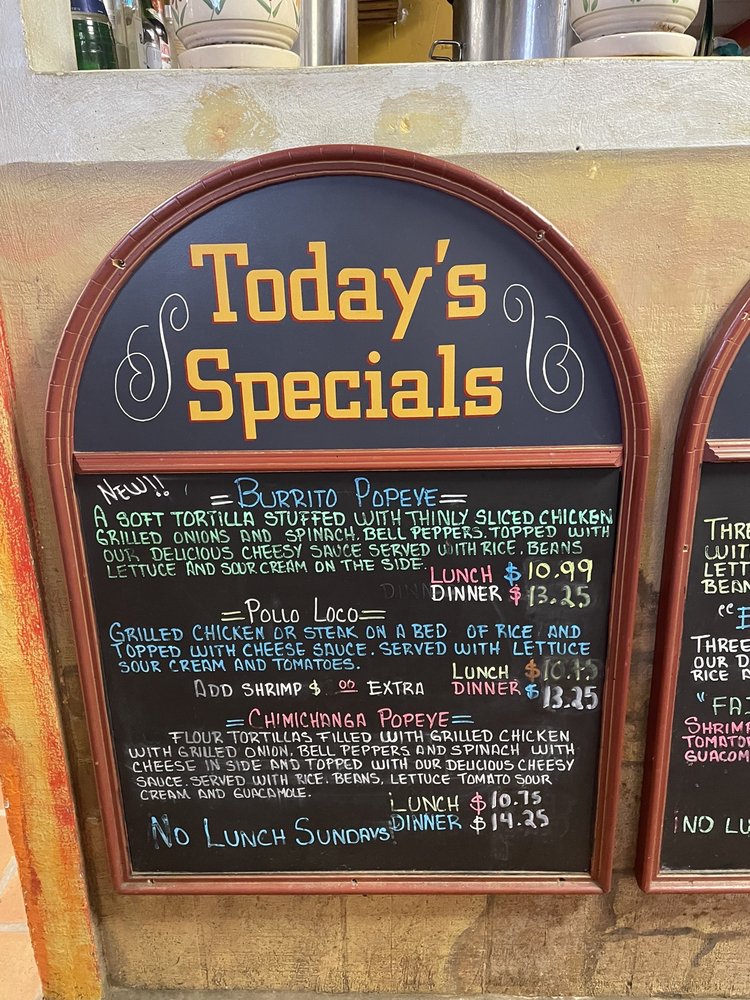 Today's
Specials
NEW!!
=BURRITO POPEYE=
A SOFT TORTILLA STUFFED WITH THINLY SLICED CHICKEN
GRILLED ONIONS AND SPINACH, BELL PEPPERS. TOPPED WITH
OUR DELICIOUS CHEESY SAUCE SERVED WITH RICE, BEANS
LETTUCE AND SOUR CREAM ON THE SIDE.
LUNCH $10.99
DINNER $13.25
=POLLO LOCO=
GRILLED CHICKEN OR STEAK ON A BED OF RICE AND
TOPPED WITH CHEESE SAUCE. SERVED WITH LETTUCE
SOUR CREAM AND TOMATOES.
LUNCH $10.
ADD SHRIMP $ .00 EXTRA
DINNER $13.25
=CHIMICHANGA POPEYE=
FLOUR TORTILLAS FILLED WITH GRILLED CHICKEN
WITH GRILLED ONION, BELL PEPPERS AND SPINACH WITH
CHEESE IN SIDE AND TOPPED WITH OUR DELICIOUS CHEESY
SAUCE. SERVED WITH RICE, BEANS, LETTUCE TOMATO SOUR
CREAM AND GUACAMOLE.
LUNCH $10.75
DINNER $14.25
NO LUNCH SUNDAYS
THRE
WITH
LETT
BEAN
THREE
OUR D
RICE A
"FAJ
SHRIMP
TOMATO
GUACOM
NO LU